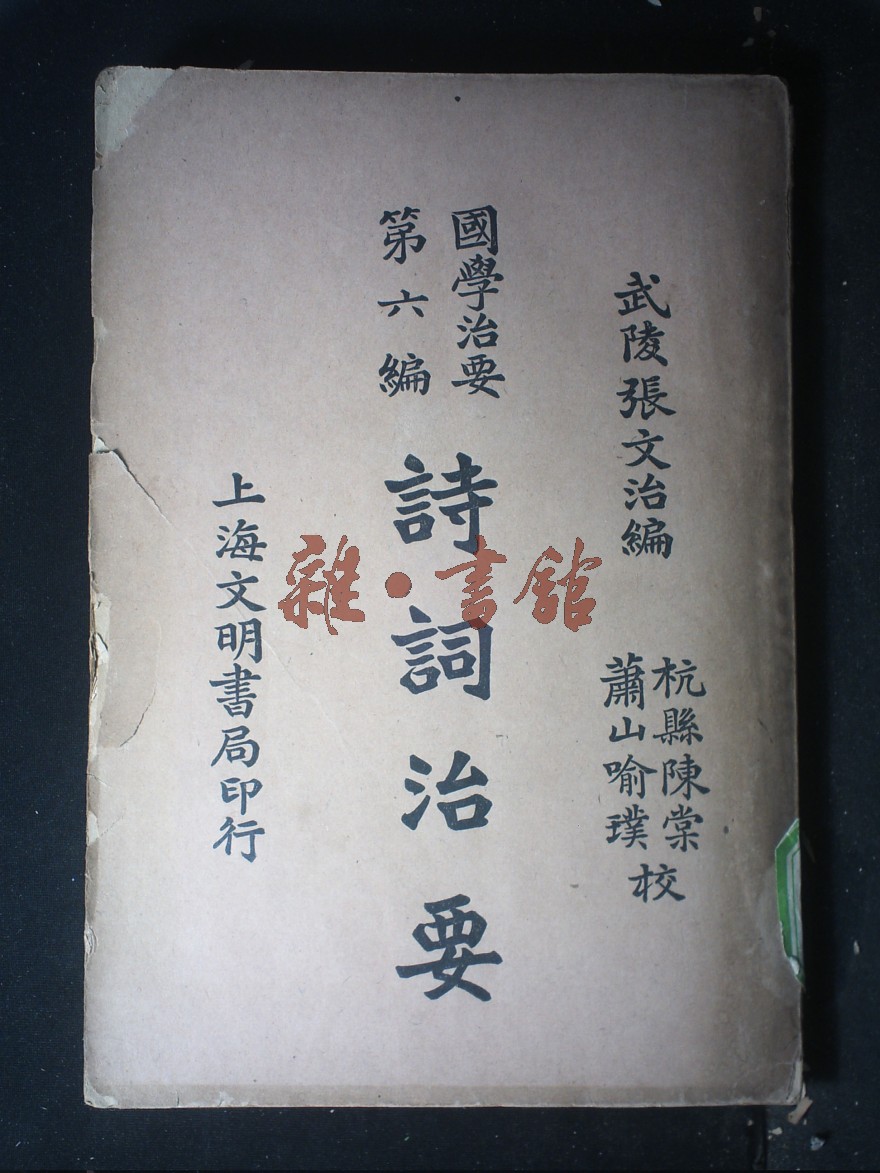 武陵張文治編
杭縣陳棠
蕭山喻璞
校
國學治要
第六編
詩詞治要
上海文明書局印行
雜·書館